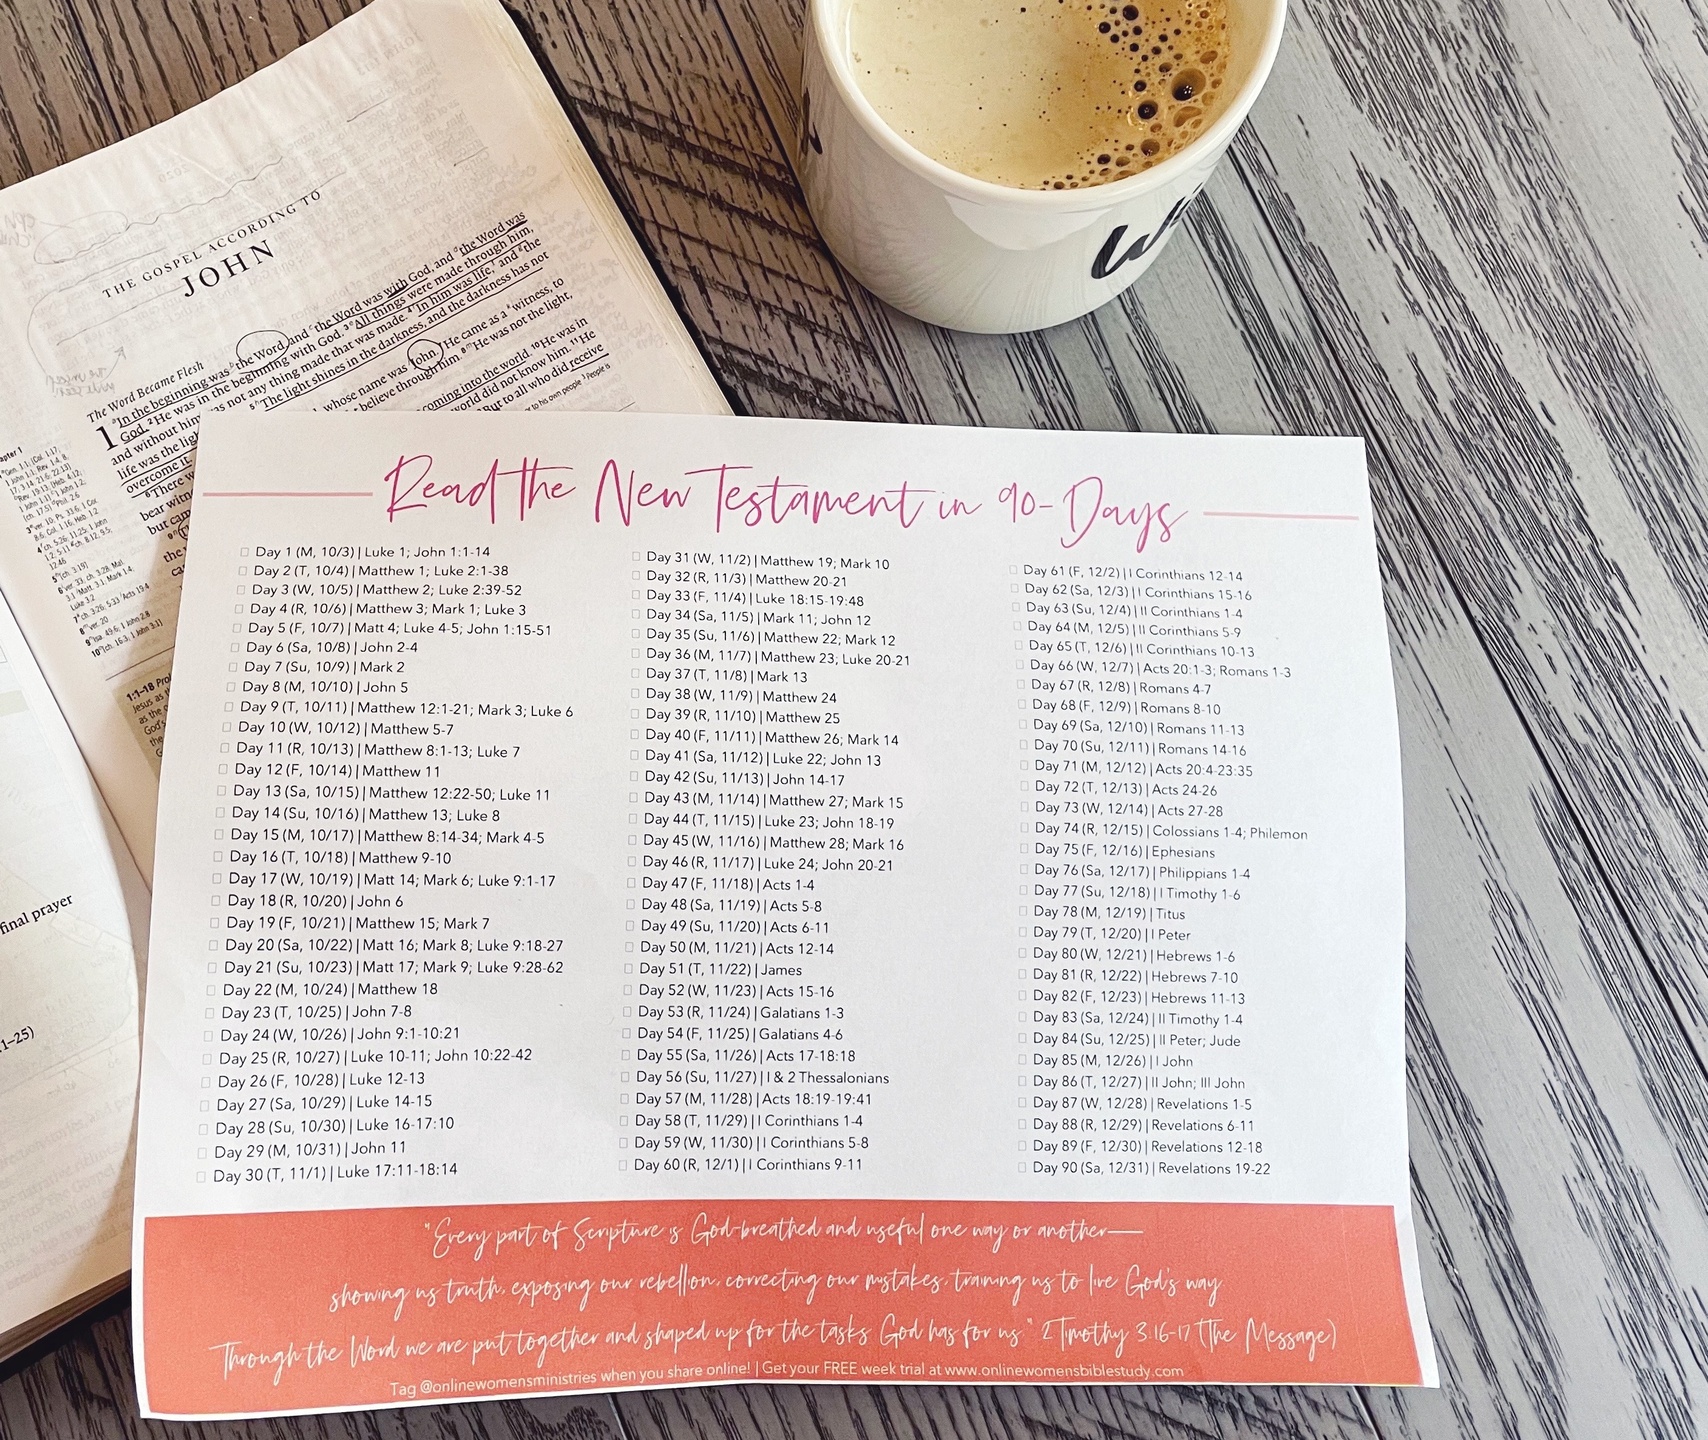 THE GOSPEL ACCORDING TO
JOHN
The Word Became Flesh
1 In the beginning was the Word, and the Word was with God, and the Word was
God. 2 He was in the beginning with God. 3 All things were made through him,
and without him was not any thing made that was made. 4 In him was life, and the
life was the light 5 The light shines in the darkness, and the darkness has not
overcome it.
6 There w whose name was John. 7 He came as a witness, to
bear witn believe through him. 8 He was not the light,
but cam
coming into the world. 10 He was in
world did not know him. 11 He
But to all who did receive
1:1–18
final prayer
Read the New Testament in 90-Days
Day 1 (M, 10/3) | Luke 1; John 1:1-14
Day 2 (T, 10/4) | Matthew 1; Luke 2:1-38
Day 3 (W, 10/5) | Matthew 2; Luke 2:39-52
Day 4 (R, 10/6) | Matthew 3; Mark 1; Luke 3
Day 5 (F, 10/7) | Matt 4; Luke 4-5; John 1:15-51
Day 6 (Sa, 10/8) | John 2-4
Day 7 (Su, 10/9) | Mark 2
Day 8 (M, 10/10) | John 5
Day 9 (T, 10/11) | Matthew 12:1-21; Mark 3; Luke 6
Day 10 (W, 10/12) | Matthew 5-7
Day 11 (R, 10/13) | Matthew 8:1-13; Luke 7
Day 12 (F, 10/14) | Matthew 11
Day 13 (Sa, 10/15) | Matthew 12:22-50; Luke 11
Day 14 (Su, 10/16) | Matthew 13; Luke 8
Day 15 (M, 10/17) | Matthew 8:14-34; Mark 4-5
Day 16 (T, 10/18) | Matthew 9-10
Day 17 (W, 10/19) | Matt 14; Mark 6; Luke 9:1-17
Day 18 (R, 10/20) | John 6
Day 19 (F, 10/21) | Matthew 15; Mark 7
Day 20 (Sa, 10/22) | Matt 16; Mark 8; Luke 9:18-27
Day 21 (Su, 10/23) | Matt 17; Mark 9; Luke 9:28-62
Day 22 (M, 10/24) | Matthew 18
Day 23 (T, 10/25) | John 7-8
Day 24 (W, 10/26) | John 9:1-10:21
Day 25 (R, 10/27) | Luke 10-11; John 10:22-42
Day 26 (F, 10/28) | Luke 12-13
Day 27 (Sa, 10/29) | Luke 14-15
Day 28 (Su, 10/30) | Luke 16-17:10
Day 29 (M, 10/31) | John 11
Day 30 (T, 11/1) | Luke 17:11-18:14
Day 31 (W, 11/2) | Matthew 19; Mark 10
Day 32 (R, 11/3) | Matthew 20-21
Day 33 (F, 11/4) | Luke 18:15-19:48
Day 34 (Sa, 11/5) | Mark 11; John 12
Day 35 (Su, 11/6) | Matthew 22; Mark 12
Day 36 (M, 11/7) | Matthew 23; Luke 20-21
Day 37 (T, 11/8) | Mark 13
Day 38 (W, 11/9) | Matthew 24
Day 39 (R, 11/10) | Matthew 25
Day 40 (F, 11/11) | Matthew 26; Mark 14
Day 41 (Sa, 11/12) | Luke 22; John 13
Day 42 (Su, 11/13) | John 14-17
Day 43 (M, 11/14) | Matthew 27; Mark 15
Day 44 (T, 11/15) | Luke 23; John 18-19
Day 45 (W, 11/16) | Matthew 28; Mark 16
Day 46 (R, 11/17) | Luke 24; John 20-21
Day 47 (F, 11/18) | Acts 1-4
Day 48 (Sa, 11/19) | Acts 5-8
Day 49 (Su, 11/20) | Acts 6-11
Day 50 (M, 11/21) | Acts 12-14
Day 51 (T, 11/22) | James
Day 52 (W, 11/23) | Acts 15-16
Day 53 (R, 11/24) | Galatians 1-3
Day 54 (F, 11/25) | Galatians 4-6
Day 55 (Sa, 11/26) | Acts 17-18:18
Day 56 (Su, 11/27) | I & 2 Thessalonians
Day 57 (M, 11/28) | Acts 18:19-19:41
Day 58 (T, 11/29) | I Corinthians 1-4
Day 59 (W, 11/30) | I Corinthians 5-8
Day 60 (R, 12/1) | I Corinthians 9-11
Day 61 (F, 12/2) | I Corinthians 12-14
Day 62 (Sa, 12/3) | I Corinthians 15-16
Day 63 (Su, 12/4) | II Corinthians 1-4
Day 64 (M, 12/5) | II Corinthians 5-9
Day 65 (T, 12/6) | II Corinthians 10-13
Day 66 (W, 12/7) | Acts 20:1-3; Romans 1-3
Day 67 (R, 12/8) | Romans 4-7
Day 68 (F, 12/9) | Romans 8-10
Day 69 (Sa, 12/10) | Romans 11-13
Day 70 (Su, 12/11) | Romans 14-16
Day 71 (M, 12/12) | Acts 20:4-23:35
Day 72 (T, 12/13) | Acts 24-26
Day 73 (W, 12/14) | Acts 27-28
Day 74 (R, 12/15) | Colossians 1-4; Philemon
Day 75 (F, 12/16) | Ephesians
Day 76 (Sa, 12/17) | Philippians 1-4
Day 77 (Su, 12/18) | I Timothy 1-6
Day 78 (M, 12/19) | Titus
Day 79 (T, 12/20) | I Peter
Day 80 (W, 12/21) | Hebrews 1-6
Day 81 (R, 12/22) | Hebrews 7-10
Day 82 (F, 12/23) | Hebrews 11-13
Day 83 (Sa, 12/24) | II Timothy 1-4
Day 84 (Su, 12/25) | II Peter; Jude
Day 85 (M, 12/26) | I John
Day 86 (T, 12/27) | II John; III John
Day 87 (W, 12/28) | Revelations 1-5
Day 88 (R, 12/29) | Revelations 6-11
Day 89 (F, 12/30) | Revelations 12-18
Day 90 (Sa, 12/31) | Revelations 19-22
"Every part of Scripture is God-breathed and useful one way or another—
showing us truth, exposing our rebellion, correcting our mistakes, training us to live God's way.
Through the Word we are put together and shaped up for the tasks God has for us." 2 Timothy 3:16-17 (The Message)
Tag @onlinewomensministries when you share online! | Get your FREE week trial at www.onlinewomensbiblestudy.com